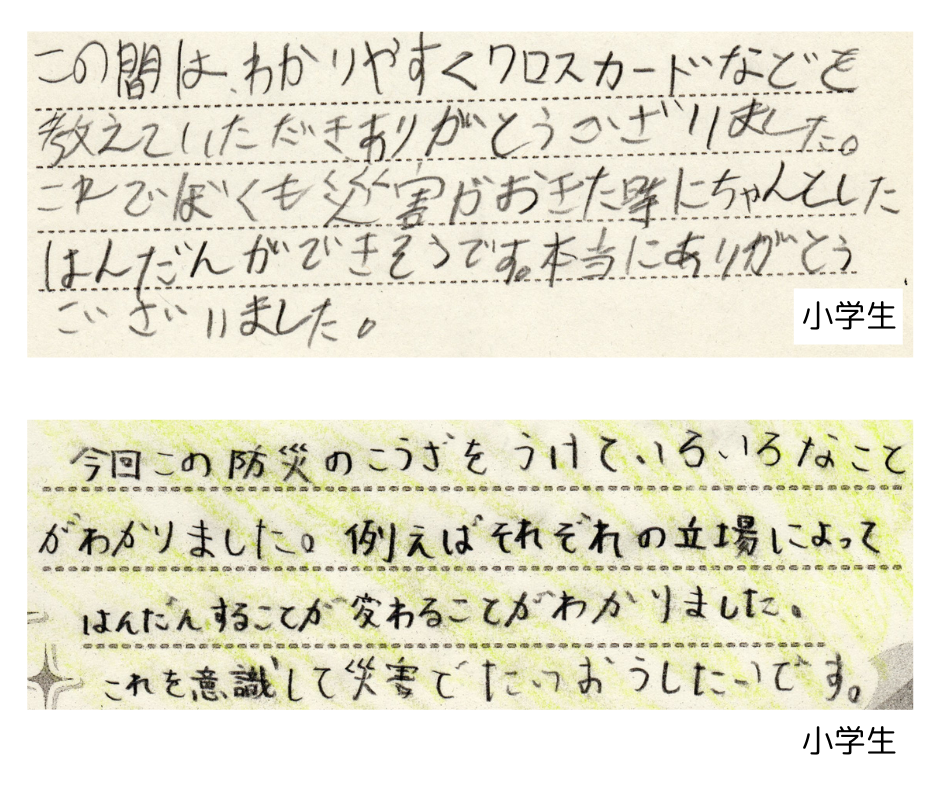 この間は、わかりやすくクロスカードなどを
教えていただきありがとうございました。
これでぼくも災害がおきた時にちゃんとした
はんだんができそうです。本当にありがとう
ございました。
小学生
今回この防災のこうざをうけて、いろいろなこと
がわかりました。例えばそれぞれの立場によって
はんだんすることが変わることがわかりました。
これを意識して災害でたいおうしたいです。
小学生